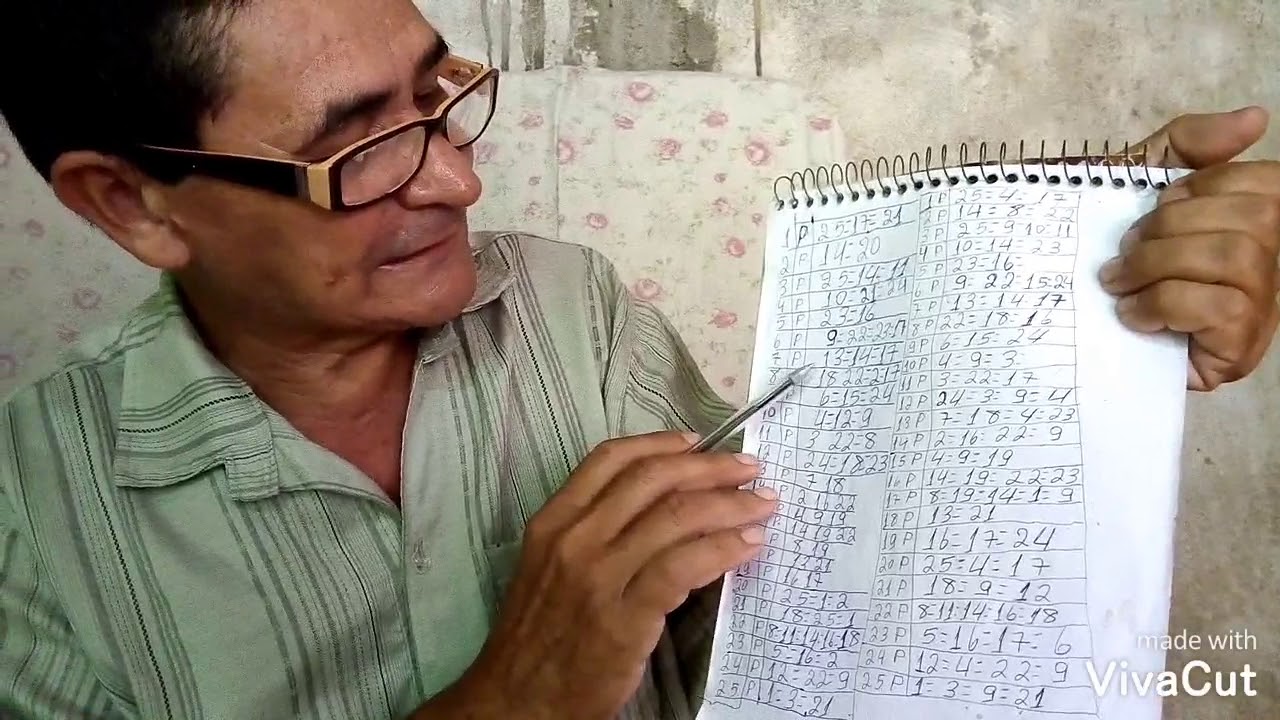 1 P 25=17=21
2 P 14=20
3 P 25=14-11
4 P 10=21 24
5 P 23=16
6 P 9=22=22-17
7 P 13=14-17
8 18 22=21-17
6=15=24
10 P 4=12=9
11 P 3 22=8
P 24=18=23
7 18
P 2 11 22
P 4 9 19
P 14 19 22
P 8 19
13 21
16 17
20 P 25=1=2
21 P 18=25=1
22 P 8-11-14-16-18
23 P 5=16=2
24 P 12=22=9
25 P 1=3=21
1 P 25=4=17
2 P 14=8=22
3 P 25=9=10=11
4 P 10=14=23
5 P 23=16=
6 P 9=22=15=24
7 P 13=14=17
8 P 22=18=16
9 P 6=15=24
10 P 4=9=3=
11 P 3=22=17
12 P 24=3=9=4
13 P 7=18=4=23
14 P 2=16=22=9
15 P 4=9=19
16 P 14=19=22=23
17 P 8=19=14=1=9
18 P 13=21
19 P 16=17=24
20 P 25=4=17
21 P 18=9=12
22 P 8-11-14-16-18
23 P 5=16=17=6
24 P 12=4=22=9
25 P 1=3=9=21
made with
VivaCut